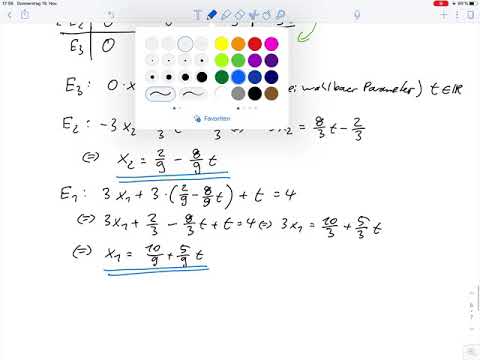 17:56 Donnerstag 19. Nov. 69 %
E₃ 0
E₃: 0·x wählbarer Parameter) t∈ℝ
E₂: -3x₂ x₂ = 8/3 t - 2/3
(=) x₂ = 2/9 - 8/9 t
E₁: 3x₁ + 3·(2/9 - 8/9 t) + t = 4
(=) 3x₁ + 2/3 - 8/3 t + t = 4 (=) 3x₁ = 10/3 + 5/3 t
(=) x₁ = 10/9 + 5/9 t
Favoriten
6
7